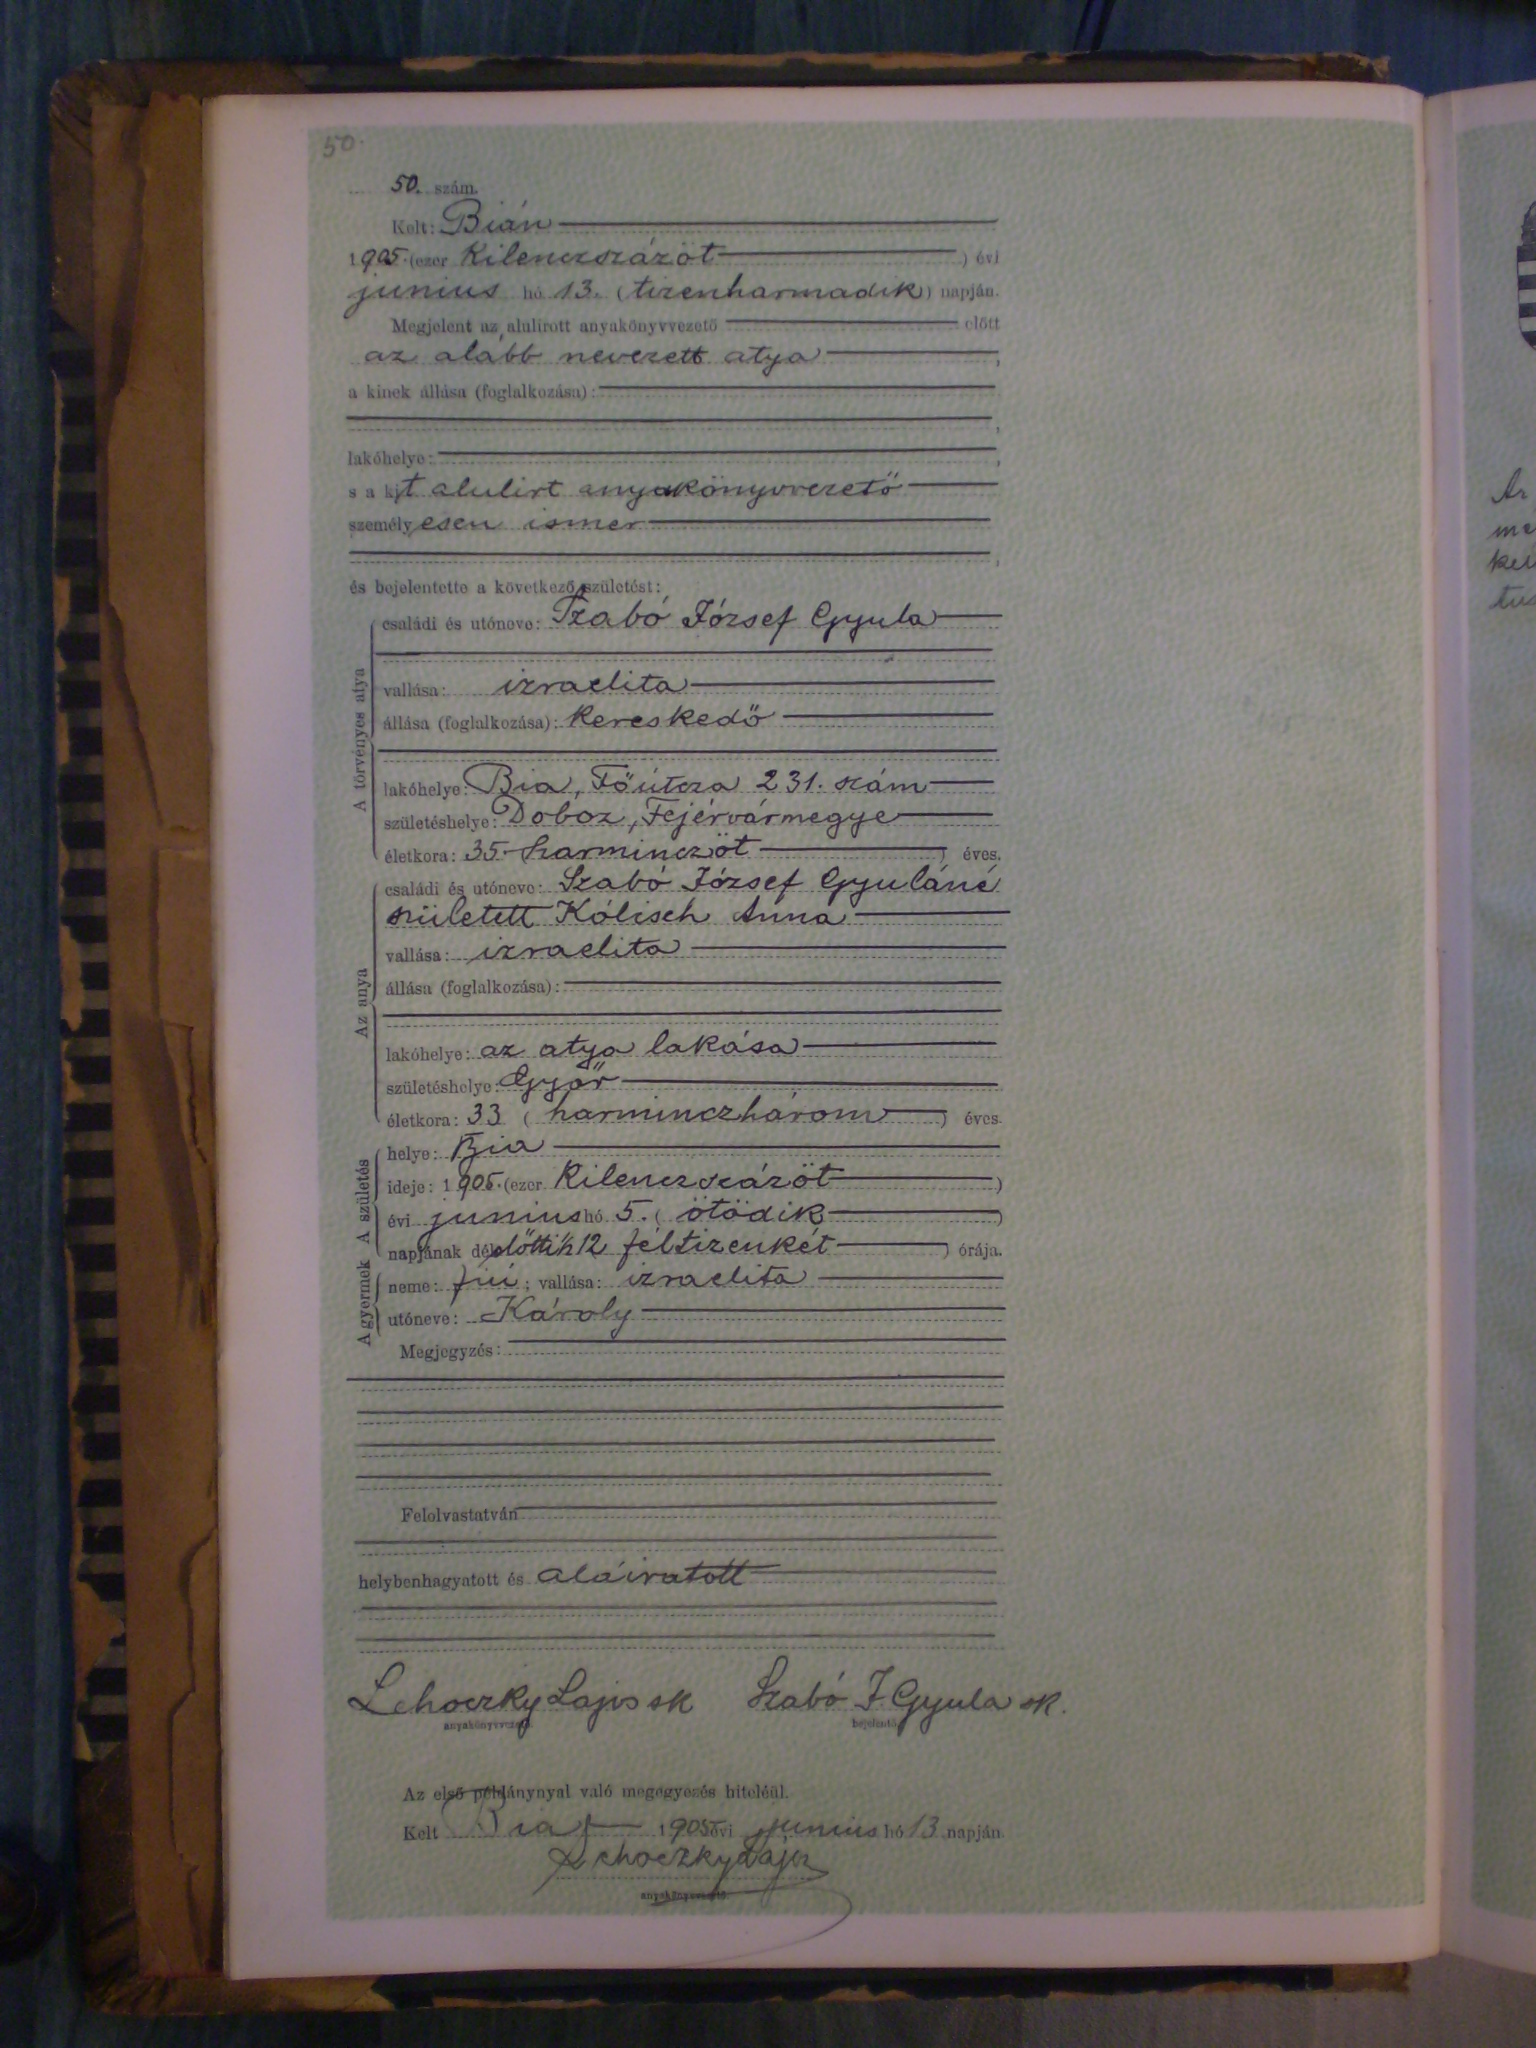 50.
50. szám.
Kelt: Bián
1905. (ezer Kilenczszázöt ) évi
junius hó 13. (tizenharmadik) napján.
Megjelent az alulírott anyakönyvvezető előtt
az alább nevezett atya ,
a kinek állása (foglalkozása):
,
lakóhelye: ,
s a kit alulirt anyakönyvvezető
személyesen ismer
,
és bejelentette a következő születést:
A törvényes atya
családi és utóneve: Szabó József Gyula
vallása: izraelita
állása (foglalkozása): Kereskedő
lakóhelye: Bia, Főútcza 231. szám
születéshelye: Doboz, Fejérvármegye
életkora: 35. (harminczöt ) éves.
Az anya
családi és utóneve: Szabó József Gyuláné
született Kólisch Anna
vallása: izraelita
állása (foglalkozása):
lakóhelye: az atya lakása
születéshelye: Győr
életkora: 33 ( harminczhárom ) éves.
A születés
helye: Bia
ideje: 1905. (ezer Kilenczszázöt )
évi junius hó 5. ( ötödik )
napjának délelőtti ½12 féltizenkét ) órája.
A gyermek
neme: fiú ; vallása: izraelita
utóneve: Károly
Megjegyzés:
Felolvastatván
helybenhagyatott és aláiratott
Lehoczky Lajos sk Szabó J. Gyula sk.
anyakönyvvezető. bejelentő.
Az első példánynyal való megegyezés hiteléül.
Kelt Bia 1905 évi junius hó 13 napján
Lehoczky Lajos
anyakönyvvezető.
Az